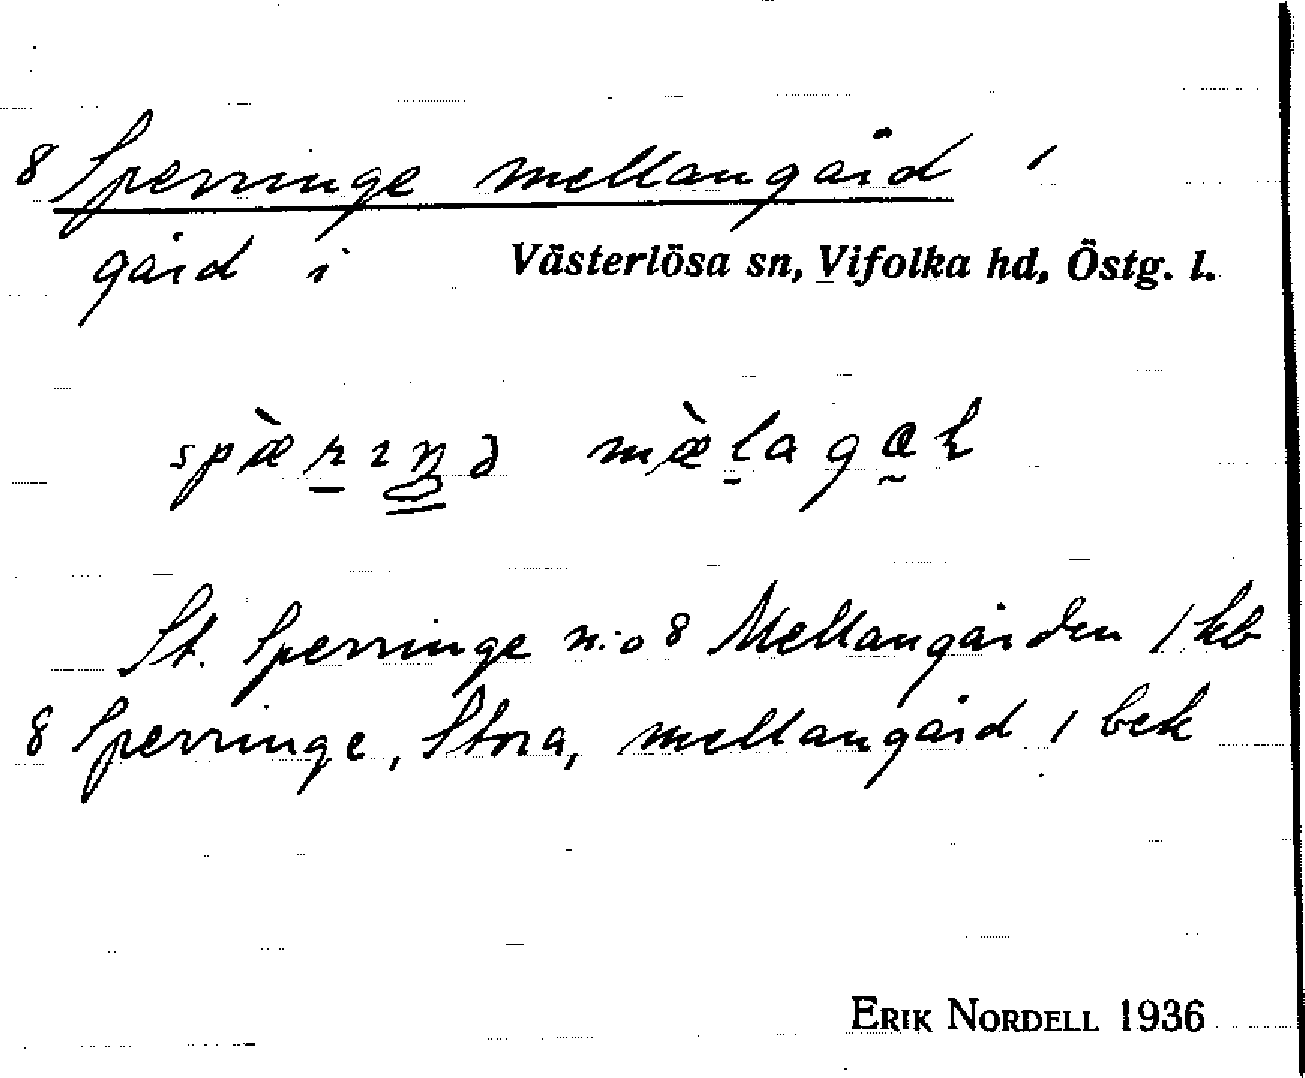 8 Sperringe mellangård 1
gård i Västerlösa sn, Vifolka hd, Östg. l.
St. Sperringe n:o 8 Mellangården 1 kb
8 Sperringe, Stora, mellangård 1 bek
ERIK NORDELL 1936